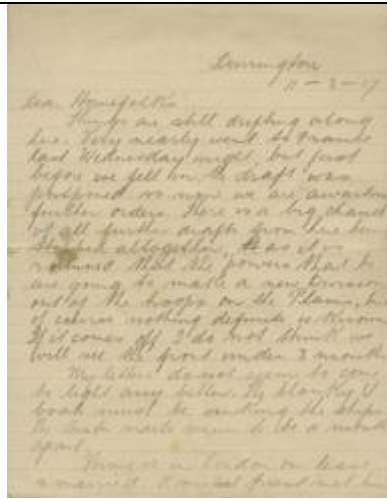 Durrington
11 - 3 - 17
Dear Homefolks
Things are still drifting along
here. Very nearly went to France
last Wednesday night, but just
before we fell in the draft was
postponed so now we are awaiting
further orders. There is a big chance
of all further drafts from here being
stopped altogether, as it is
rumoured that the powers that be
are going to make a new Division
out of the troops on the Plains, but
of course nothing definite is known
If it comes off I do not think we
will see the front under 3 months
My letters do not seem to come
to light any better. The blanky U
boats must be sinking the ships
mails seem to be a month
apart.
is in London on leave